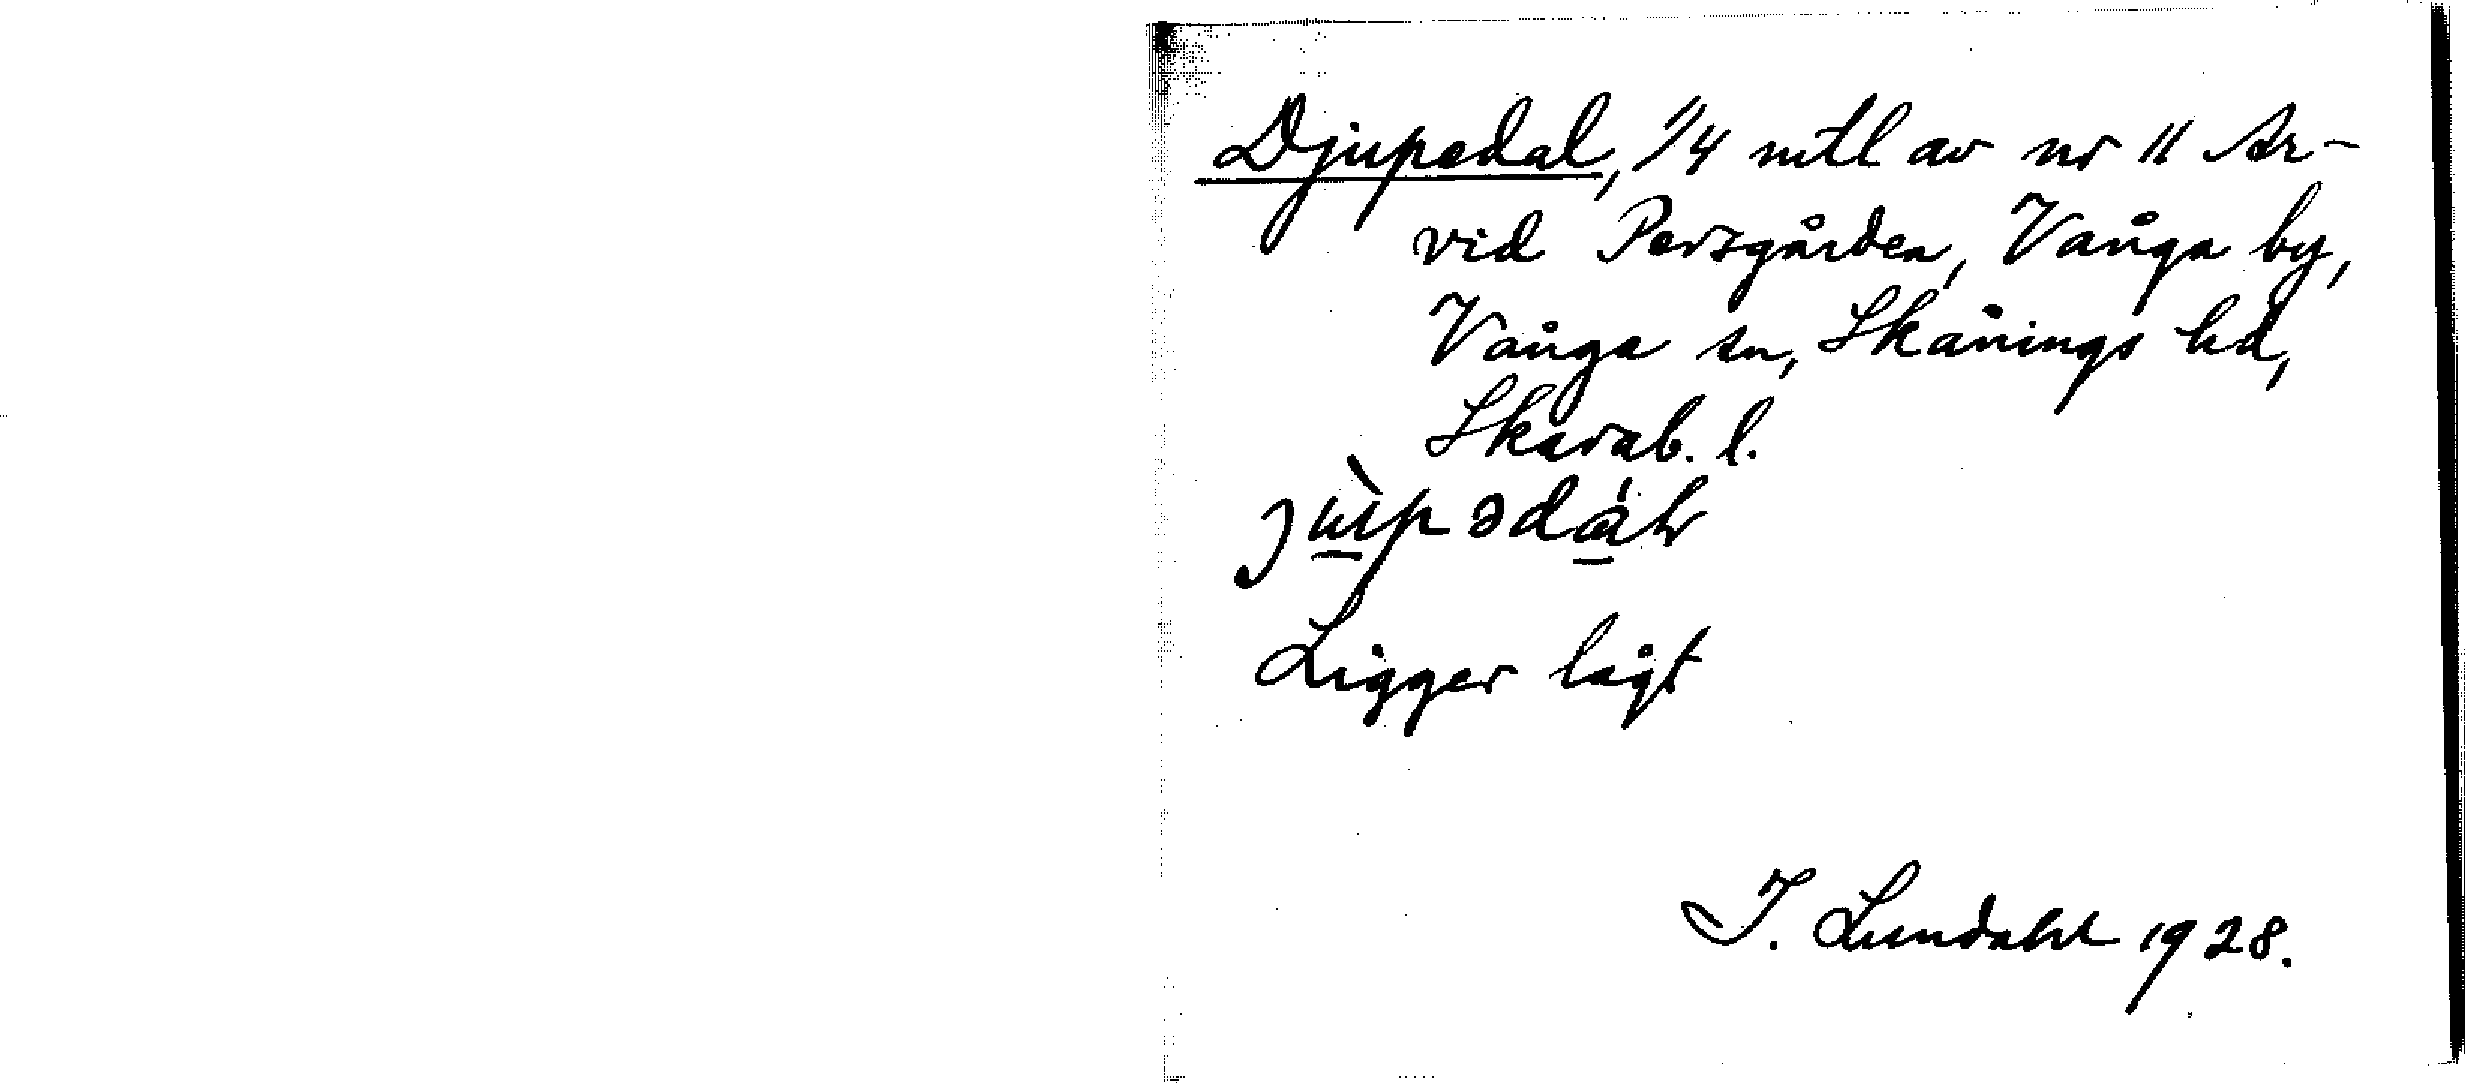 Djupedal, 1/4 mtl av nr 11 Ar-
vid Persgården, Vånga by,
Vånga sn, Skånings hd,
Skarab. l.
jùpədáɫ
Ligger lågt
I. Lundahl 1928.